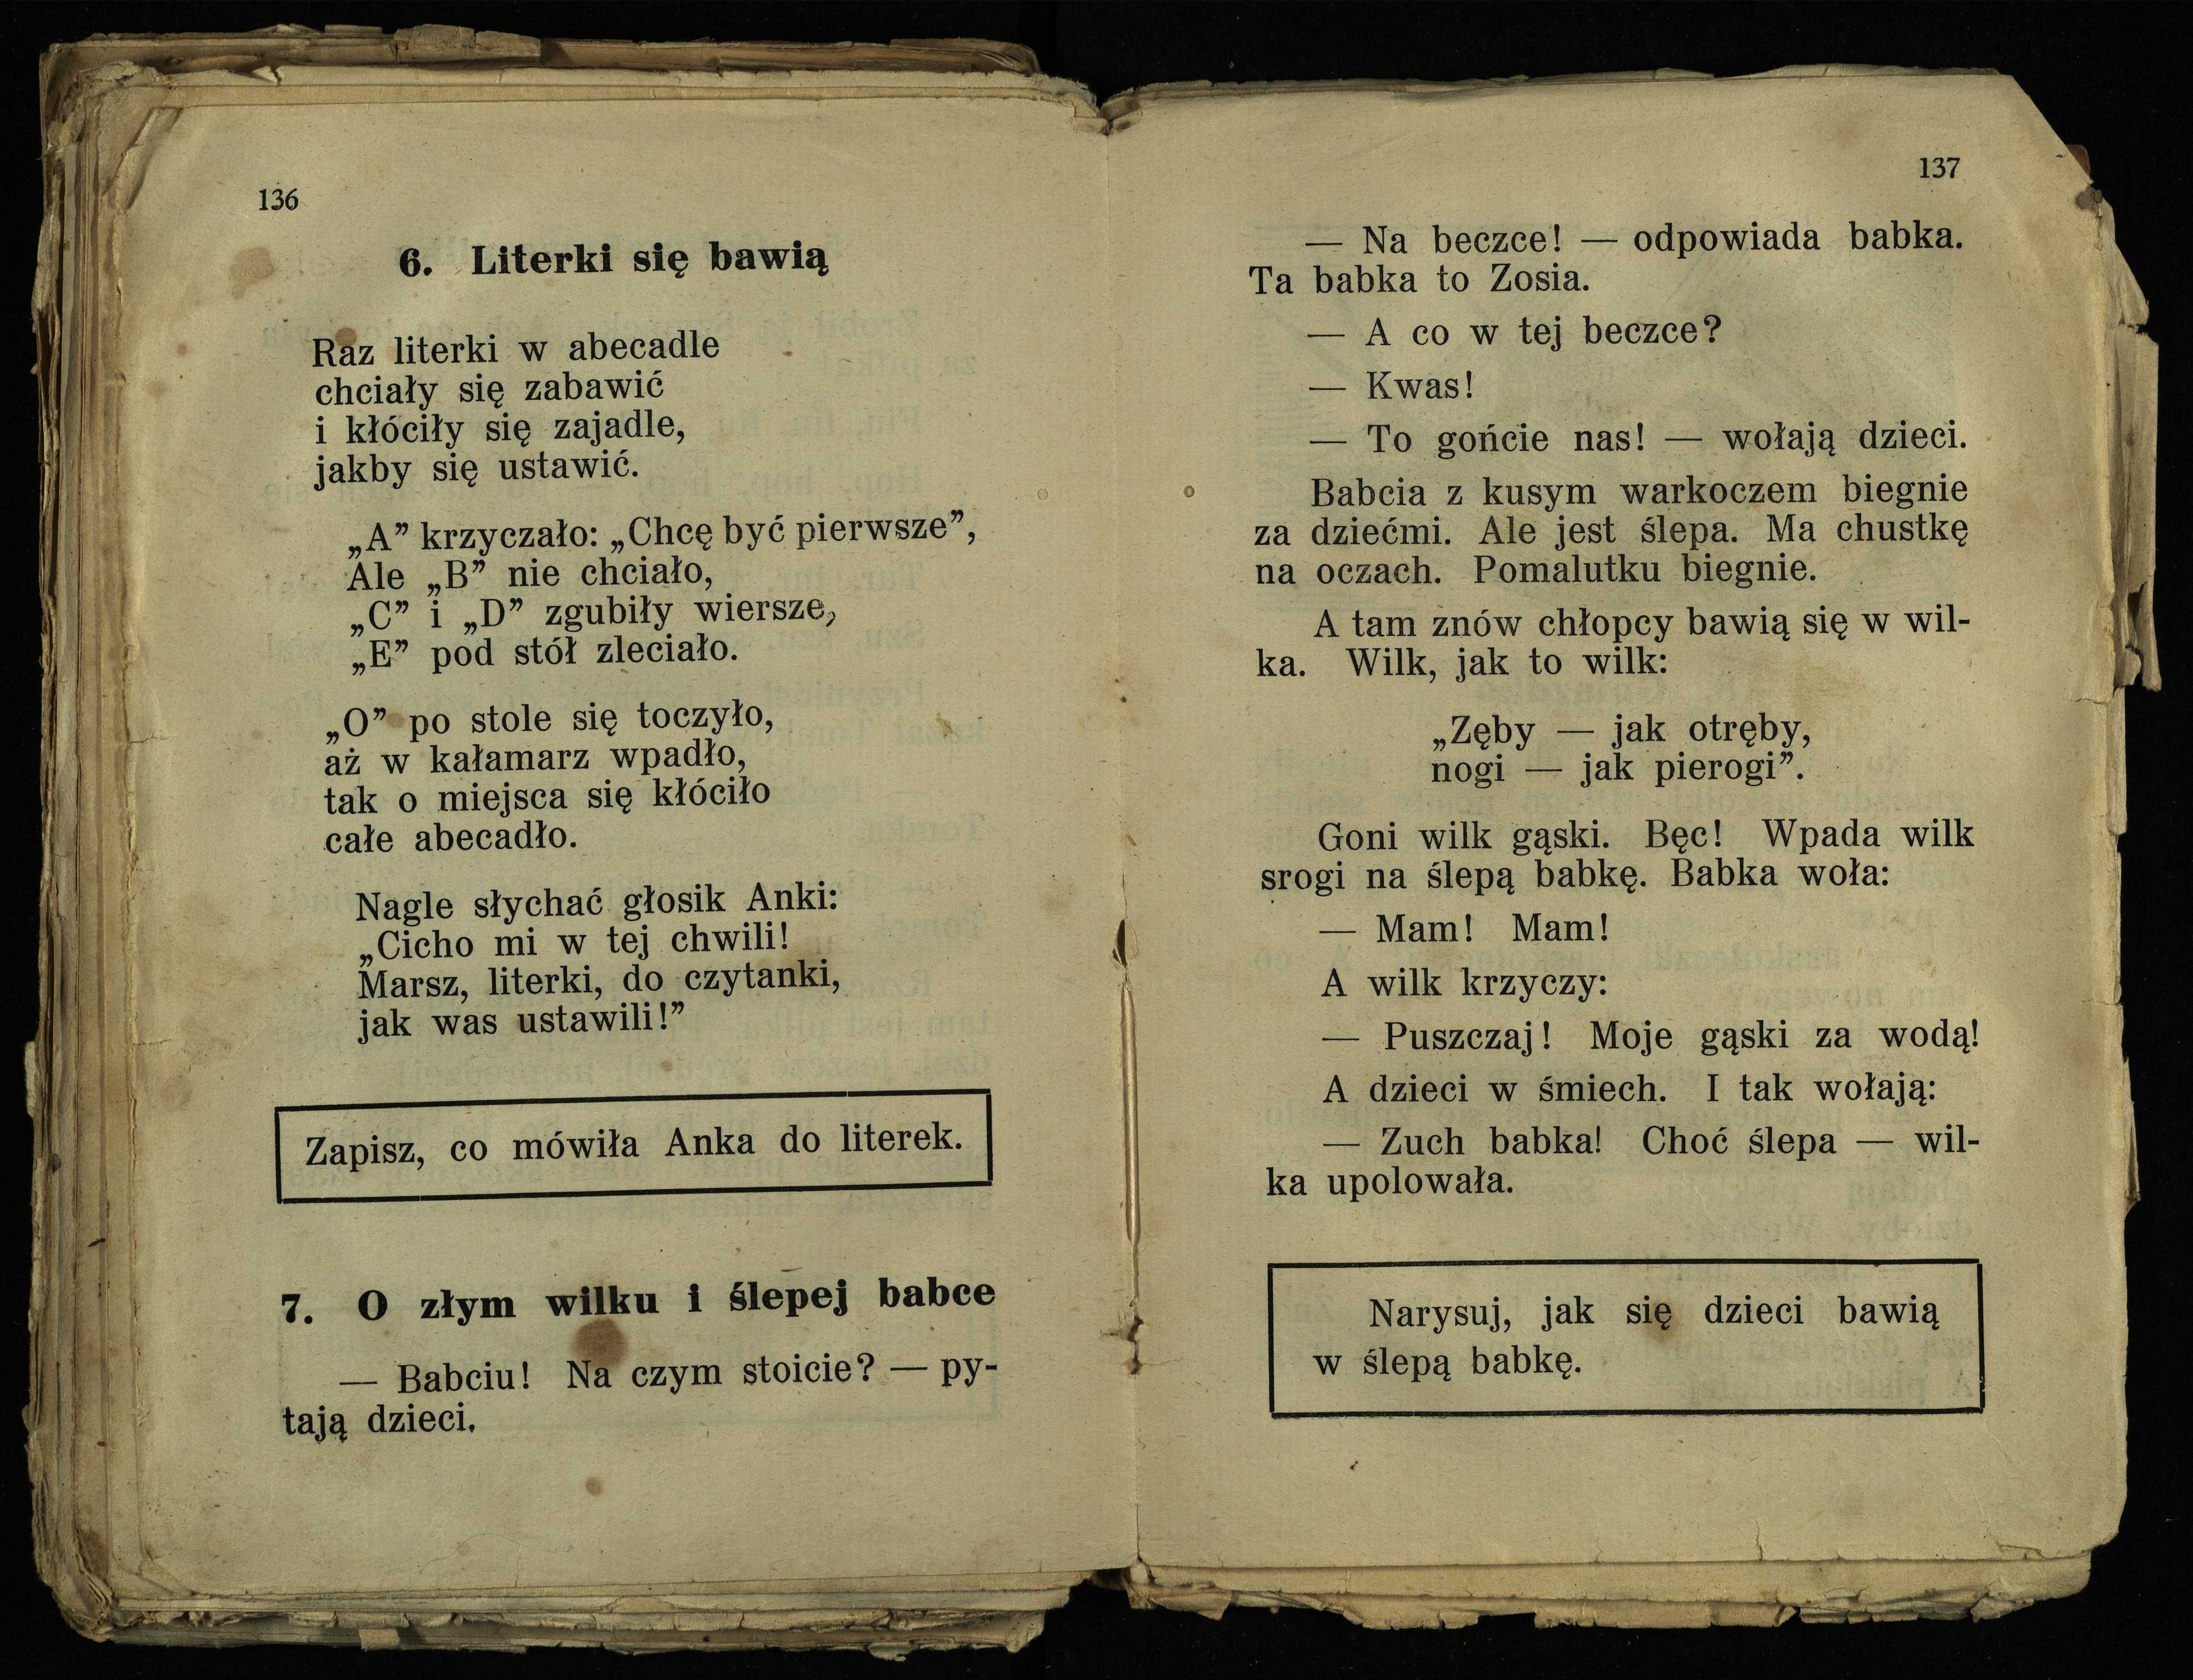 136
6. Literki się bawią
Raz literki w abecadle
chciały się zabawić
i kłóciły się zajadle,
jakby się ustawić.
„A” krzyczało: „Chcę być pierwsze”,
Ale „B” nie chciało,
„C” i „D” zgubiły wiersze,
„E” pod stół zleciało.
„O” po stole się toczyło,
aż w kałamarz wpadło,
tak o miejsca się kłóciło
całe abecadło.
Nagle słychać głosik Anki:
„Cicho mi w tej chwili!
Marsz, literki, do czytanki,
jak was ustawili!”
Zapisz, co mówiła Anka do literek.
7. O złym wilku i ślepej babce
— Babciu! Na czym stoicie? — py-
tają dzieci.
137
— Na beczce! — odpowiada babka.
Ta babka to Zosia.
— A co w tej beczce?
— Kwas!
— To gońcie nas! — wołają dzieci.
Babcia z kusym warkoczem biegnie
za dziećmi. Ale jest ślepa. Ma chustkę
na oczach. Pomalutku biegnie.
A tam znów chłopcy bawią się w wil-
ka. Wilk, jak to wilk:
„Zęby — jak otręby,
nogi — jak pierogi”.
Goni wilk gąski. Bęc! Wpada wilk
srogi na ślepą babkę. Babka woła:
— Mam! Mam!
A wilk krzyczy:
— Puszczaj! Moje gąski za wodą!
A dzieci w śmiech. I tak wołają:
— Zuch babka! Choć ślepa — wil-
ka upolowała.
Narysuj, jak się dzieci bawią
w ślepą babkę.